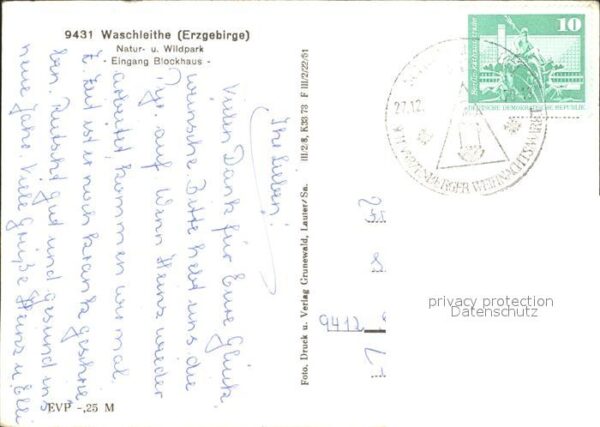 9431 Waschleithe (Erzgebirge)
Natur- u. Wildpark
- Eingang Blockhaus -
Ihr Lieben!
Vielen Dank für Eure Glück-
wünsche. Bitte hebt uns die
auf. Wenn Heinz wieder
arbeitet, kommen wir mal
z. Zeit ist er noch krank geschrie-
ben. Rutscht gut und gesund ins
neue Jahr. Viele Grüße Heinz u. Elli
EVP -,25 M
Foto, Druck u. Verlag Grunewald, Lauter/Sa.
III/2/8, K33/73 F III/2/22/51
10
DEUTSCHE DEMOKRATISCHE REPUBLIK
27.12.
SCHWARZENBERGER WEIHNACHTSMARKT
9412
privacy protection
Datenschutz